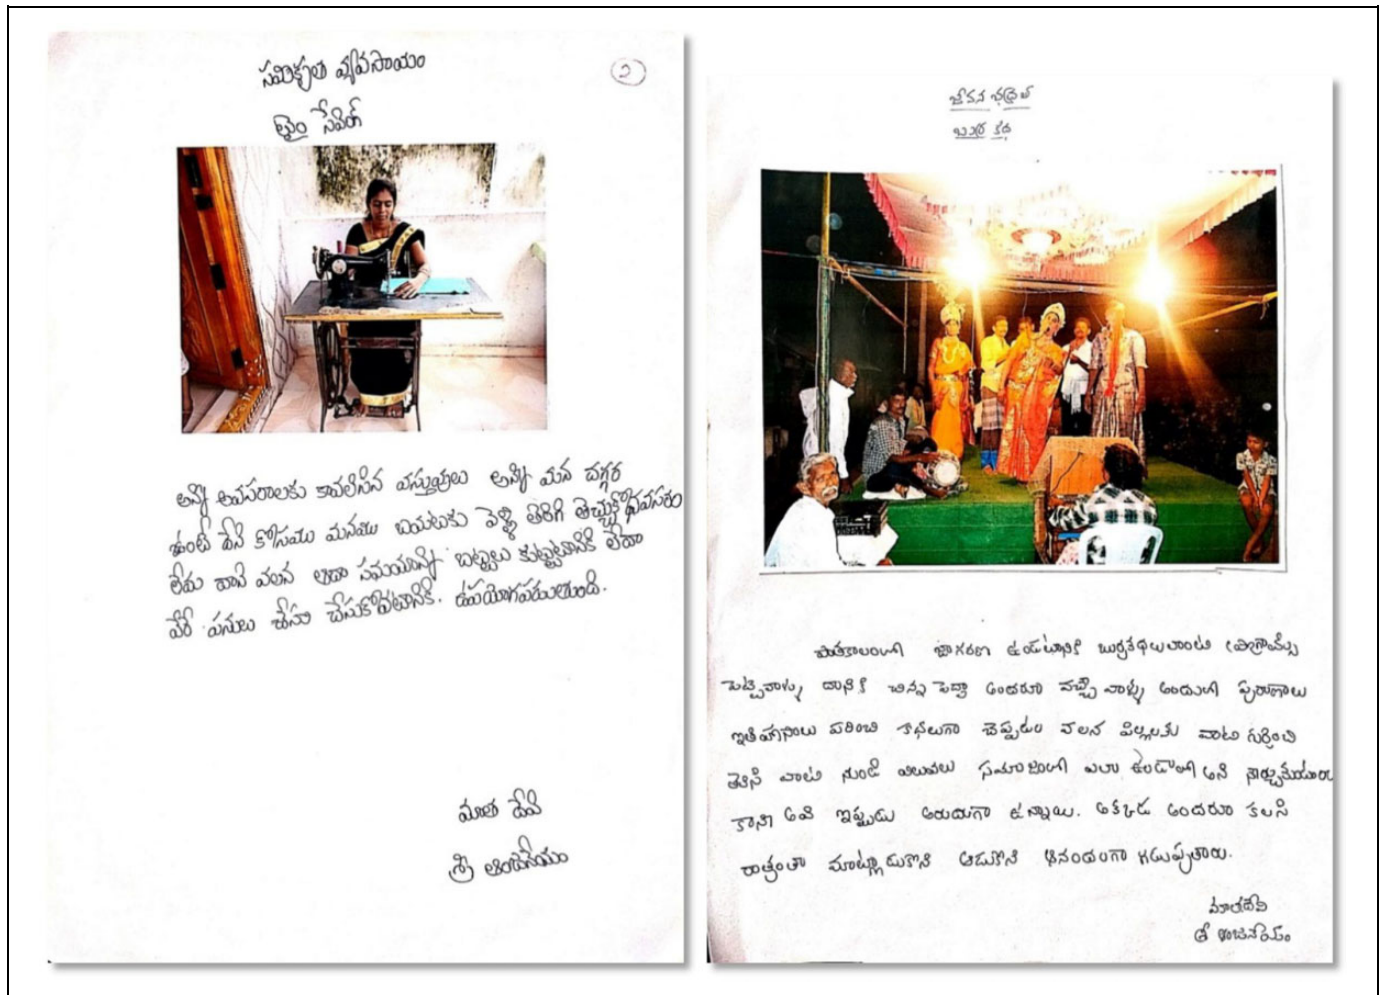 సమీకృత వ్యవసాయం
2
టైం సేవింగ్
అన్ని అవసరాలకు కావలిసిన వస్తువులు అన్ని మన దగ్గర
ఉంటే దేని కోసము మనము బయటకు వెళ్ళి తిరిగి తెచ్చుకోనవసరం
లేదు దాని వలన ఆదా సమయాన్ని బట్టలు కుట్టటానికి లేదా
వేరే పనులు చేసుకోవటానికి. ఉపయోగపడుతుంది.
మాత దేవి
శ్రీ ఆంజనేయం
జీవన
బుర్ర కథ
పాతకాలంలో జాగరణ ఉండటానికి బుర్రకథలులాంటి ప్రోగ్రామ్స్
పెట్టెవాళ్ళు దానికి చిన్న పెద్దా అందరూ వచ్చె వాళ్ళు అందులో పురాణాలు
ఇతిహాసాలు కాథలుగా చెప్పడం వలన పిల్లలకు వాటి గుర్రించి
తెలిసి వాటి నుండి విలువలు సమాజంలో ఎలా ఉండాలో అని
కాని అవి ఇప్పుడు అరుదుగా ఉన్నాయి. అక్కడ అందరూ కలసి
రాత్రంతా మాట్లాడుకొని ఆడుకొని ఆనందంగా గడుపుతారు.
మాతదేవి
శ్రీ ఆంజనేయం